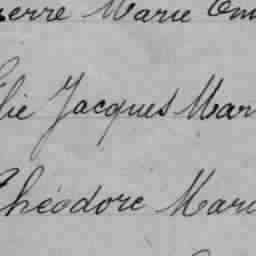 Pierre Marie Em
Elie Jacques Mar
Théodore Mari